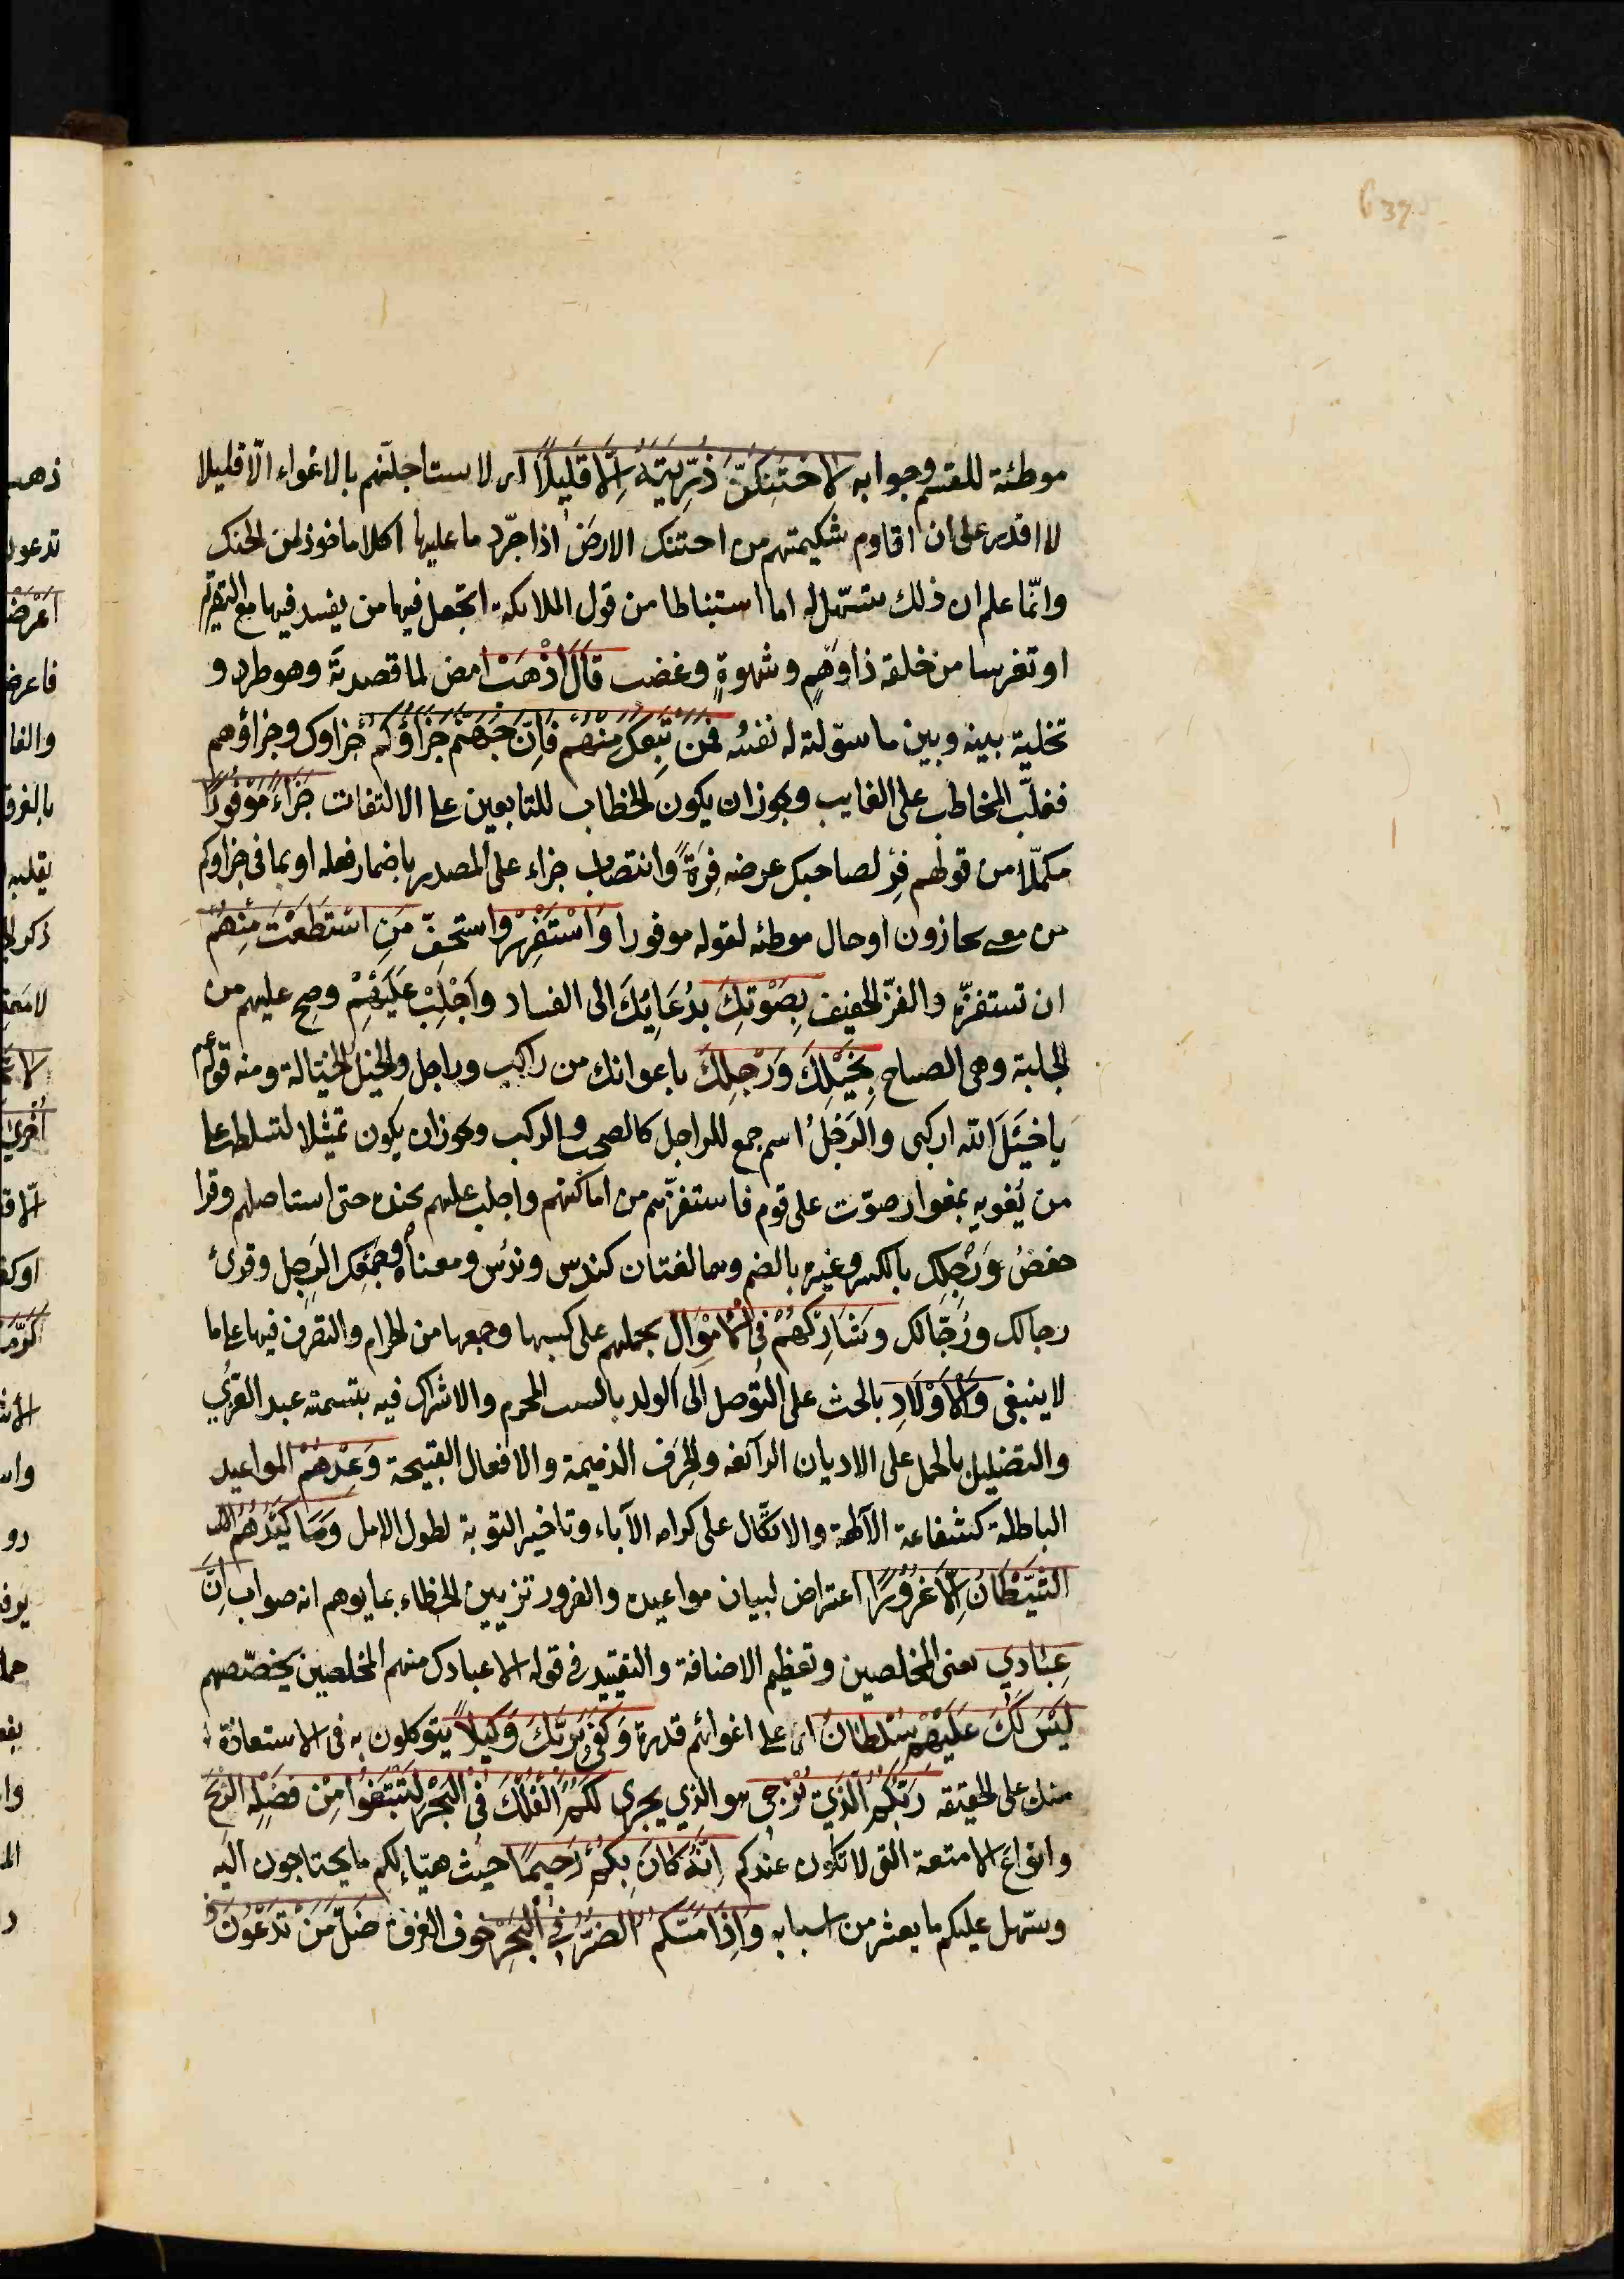 موطئة للقسم وجوابه لَاحْتَنِكَنَّ ذُرِّيَّتَهُ اِلَّا قَلِيلًا اى لاستاصلنّهم بالاغواء الّا قليلا
لا اقدر على ان اقاوم شكيمتهم من احتنك الارضَ اذا جرّد ما عليها اكلا ماخوذ من الحنك
وانّما علم ان ذلك يتسهّل له اما استنباطا من قول الملائكة اتجعل فيها من يفسد فيها مع التقرير
او تفرسا من خلقه ذا وَهْمٍ وشهوةٍ وغضب قَالَ اذْهَبْ امض لما قصدتَه وهو طرد و
تخلية بينه وبين ما سوّلته له نفسُه فَمَنْ تَبِعَكَ مِنْهُمْ فَاِنَّ جَهَنَّمَ جَزَاؤُكُمْ جزاؤك وجزاؤهم
فغلّب المخاطب على الغايب ويجوز ان يكون الخطاب للتابعين على الالتفات جَزَاءً مَوْفُورًا
مكمّلا من قولهم فِرْ لصاحبك عرضه فِرَةً وانتصاب جزاء على المصدر باضمار فعله او بما فى جزاؤكم
من معنى تجازون او حال موطئه لقوله موفورا وَاسْتَفْزِزْ واستخفّ مَنِ اسْتَطَعْتَ مِنْهُمْ
ان تستفزّه والفزّ الخفيف بِصَوْتِكَ بدُعَائِكَ الى الفساد وَاَجْلِبْ عَلَيْهِمْ وصِح عليهم من
الجلبة وهى الصياح بِخَيْلِكَ وَرَجِلِكَ باعوانك من راكب وراجل والخيل الخيّالة ومنه قوله عم
يا خَيْلَ الله اركبى والرَجْلُ اسم جمع للراجل كالصحب والركب ويجوز ان يكون تمثيلا لتسلطه على
من يُغويه بمغوار صوّت على قوم فاستفزّهم من اماكنهم واجلب عليهم بجنده حتى استاصلهم وقرا
حفصُ وَرَجِلِكَ بالكسر وغيره بالضم وهما لغتان كندِس وندُس ومعناه وجَمْعِك الرَجِل وقرئ
رجالك ورُجّالك وَشَارِكْهُمْ فِى الْاَمْوَالِ بحملهم على كسبها وجمعها من الحرام والتصرف فيها على ما
لا ينبغى وَالْاَوْلَادِ بالحث على التوصل الى الولد بالسبب المحرم والاشراك فيه بتسمته عبد العزّى
والتضليل بالحمل على الاديان الزائغه والحِرَف الذميمة والافعال القبيحة وَعِدْهُمْ المواعيد
الباطلة كشفاعة الآلهة والاتّكال على كرامه الآباء وتاخير التوبة لطول الامل وَمَا يَعِدُهُمُ
الشَّيْطَانُ اِلَّا غُرُورًا اعتراض لبيان مواعيده والغرور تزيين الخطاء بما يوهم انه صواب اِنَّ
عِبَادِي يعنى المخلصين وتعظيم الاضافة والتقييد فى قوله الا عبادك منهم المخلصين يخصّصهم
لَيْسَ لَكَ عَلَيْهِمْ سُلْطَانٌ اى على اغوائهم قدرة وَكَفَى بِرَبِّكَ وَكِيلًا يتوكلون به فى الاستعاذة
منك على الحقيقه رَبُّكُمُ الَّذِي يُزْجِى هو الذي يجرى لَكُمُ الْفُلْكَ فِى الْبَحْرِ لِتَبْتَغُوا مِنْ فَضْلِهِ الربح
وانواع الامتعة التى لا تكون عندكم اِنَّهُ كَانَ بِكُمْ رَحِيمًا حيث هيّاء لكم ما يحتاجون اليه
وسهّل عليكم ما يعسر من اسبابه وَاِذَا مَسَّكُمُ الضُّرُّ فِي الْبَحْرِ خوف الغرق ضَلَّ مَنْ تَدْعُونَ